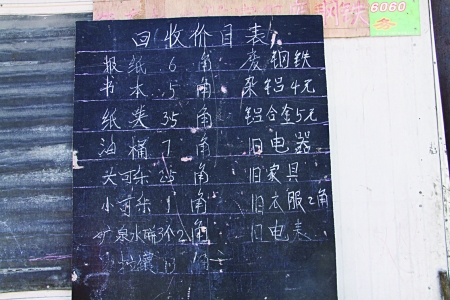 废钢铁 6060
回收价目表
报纸 6 角 废钢铁
书本 5 角 杂铝4元
纸类 35 角 铝合金5元
油桶 7 角 旧电器
大可乐 25 角 旧家具
小可乐 1 角 旧衣服2角
矿泉水瓶3个2角 旧电表
角